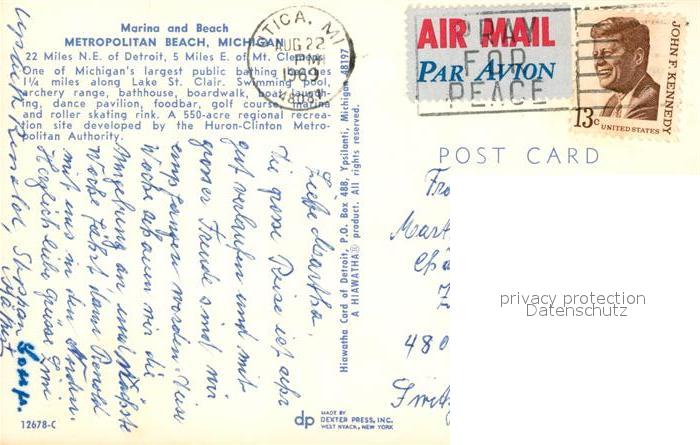 Marina and Beach
METROPOLITAN BEACH, MICHIGAN
22 Miles N.E. of Detroit, 5 Miles E. of Mt. Clemens
One of Michigan's largest public bathing
1¼ miles along Lake St. Clair. Swimming pool,
archery range, bathhouse, boardwalk, boat launch-
ing, dance pavilion, foodbar, golf course, marina
and roller skating rink. A 550-acre regional recrea-
tion site developed by the Huron-Clinton Metro-
politan Authority.
UTICA, MI
AUG 22
PM
1969
48087
AIR MAIL
PAR AVION
PRAY
FOR
PEACE
JOHN F. KENNEDY
13c UNITED STATES
POST CARD
48197
Hiawatha Card of Detroit, P.O. Box 488, Ypsilanti, Michigan
A HIAWATHA® product. All rights reserved.
Liebe Martha,
Die grosse Reise ist sehr
gut verlaufen und mit
grosser Freude sind wir
empfangen worden. Diese
Woche schauen wir die
Umgebung an und nächste
Woche fährt dann Renold
mit uns in den Norden.
Herzlich liebe Grüsse
480
privacy protection
Datenschutz
dp
MADE BY
DEXTER PRESS, INC.
WEST NYACK, NEW YORK
12678-C